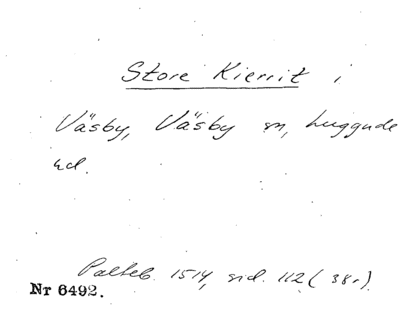 Store Kierrit i
Väsby, Väsby sn, Luggude
hd.
Palteb. 1514, sid. 112 (38r).
Nr 6492.